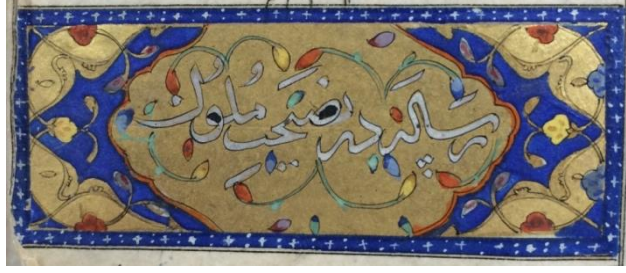 رساله در نصیحت ملوک